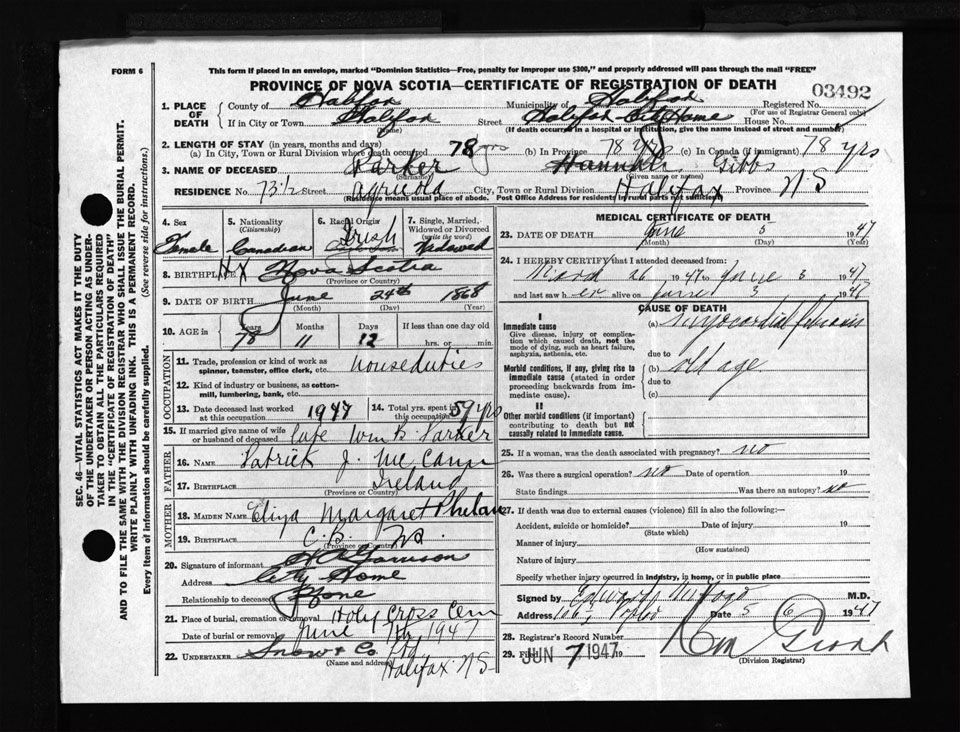 FORM 6
This form if placed in an envelope, marked "Dominion Statistics—Free, penalty for improper use $300," and properly addressed will pass through the mail "FREE"
PROVINCE OF NOVA SCOTIA—CERTIFICATE OF REGISTRATION OF DEATH
03492
1. PLACE OF DEATH
County of Halifax Municipality of Halifax Registered No.
(For use of Registrar General only)
If in City or Town Halifax Street Halifax City Home House No.
(Name) (If death occurred in a hospital or institution, give the name instead of street and number)
2. LENGTH OF STAY (in years, months and days)
(a) In City, Town or Rural Division where death occurred 78 yrs (b) In Province 78 yrs (c) In Canada (if immigrant) 78 yrs
3. NAME OF DECEASED Parker Hannah Gibbs
(Surname) (Given name or names)
RESIDENCE No. 73 1/2 Street Agricola City, Town or Rural Division Halifax Province N S
(Residence means usual place of abode. Post Office Address for residents in rural parts not sufficient)
4. Sex
Female
5. Nationality
(Citizenship)
Canadian
6. Racial Origin
Irish
7. Single, Married, Widowed or Divorced
(write the word)
Widowed
8. BIRTHPLACE Hx Nova Scotia
(Province or Country)
9. DATE OF BIRTH June 24th 1868
(Month) (Day) (Year)
10. AGE in Years Months Days If less than one day old
78 11 12 hrs. or min.
OCCUPATION
11. Trade, profession or kind of work as spinner, teamster, office clerk, etc. Houseduties
12. Kind of industry or business, as cotton-mill, lumbering, bank, etc.
13. Date deceased last worked at this occupation 1947
14. Total yrs. spent in this occupation 59 yrs
15. If married give name of wife or husband of deceased Late Wm B. Parker
FATHER
16. NAME Patrick J. McCann
17. BIRTHPLACE Ireland
(Province or Country)
MOTHER
18. MAIDEN NAME Eliza Margaret Phelan
19. BIRTHPLACE C. B. N.S.
(Province or Country)
20. Signature of informant Garrison
Address City Home
Relationship to deceased None
21. Place of burial, cremation or removal Holy Cross Cem
Date of burial or removal June 7th, 1947
22. UNDERTAKER Snow & Co Ltd
(Name and address) Halifax N S
MEDICAL CERTIFICATE OF DEATH
23. DATE OF DEATH June 5 1947
(Month) (Day) (Year)
24. I HEREBY CERTIFY that I attended deceased from:
March 26 1947 to June 3 1947
and last saw her alive on June 3 1947
CAUSE OF DEATH
I
Immediate cause
Give disease, injury or complication which caused death, not the mode of dying, such as heart failure, asphyxia, asthenia, etc.
(a) Myocardial fibrosis
due to
Morbid conditions, if any, giving rise to immediate cause (stated in order proceeding backwards from immediate cause).
(b) old age
due to
(c)
II
Other morbid conditions (if important) contributing to death but not causally related to immediate cause.
25. If a woman, was the death associated with pregnancy? no
26. Was there a surgical operation? no Date of operation 19
State findings Was there an autopsy? no
27. If death was due to external causes (violence) fill in also the following:—
Accident, suicide or homicide? Date of injury 19
(State which)
Manner of injury
(How sustained)
Nature of injury
Specify whether injury occurred in industry, in home, or in public place
Signed by Edward M.D.
Address Date 5 6 1947
28. Registrar's Record Number
29. Filed JUN 7 1947 19
(Division Registrar)
SEC. 46—VITAL STATISTICS ACT MAKES IT THE DUTY
OF THE UNDERTAKER OR PERSON ACTING AS UNDER-
TAKER TO OBTAIN ALL THE PARTICULARS REQUIRED
IN THE "CERTIFICATE OF REGISTRATION OF DEATH"
AND TO FILE THE SAME WITH THE DIVISION REGISTRAR WHO SHALL ISSUE THE BURIAL PERMIT.
WRITE PLAINLY WITH UNFADING INK. THIS IS A PERMANENT RECORD.
Every item of information should be carefully supplied. (See reverse side for instructions.)